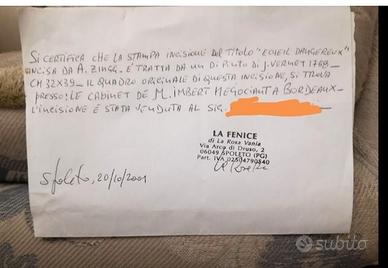 SI CERTIFICA CHE LA STAMPA INCISIONE DEL TITOLO "ECUEIL DANGEREUX"
INCISA DA A. ZINGG. E' TRATTA DA UN DIPINTO DI J. VERNET 1768_
CM 32X39_ IL QUADRO ORIGINALE DI QUESTA INCISIONE, SI TROVA
PRESSO: LE CABINET DE M. IMBERT NEGOCIANT A BORDEAUX_
L'INCISIONE E' STATA VENDUTA AL SIG.
LA FENICE
di La Rosa Vania
Via Arco di Druso, 2
06049 SPOLETO (PG)
Part. IVA 02504790540
Spoleto, 20/10/2001
subito